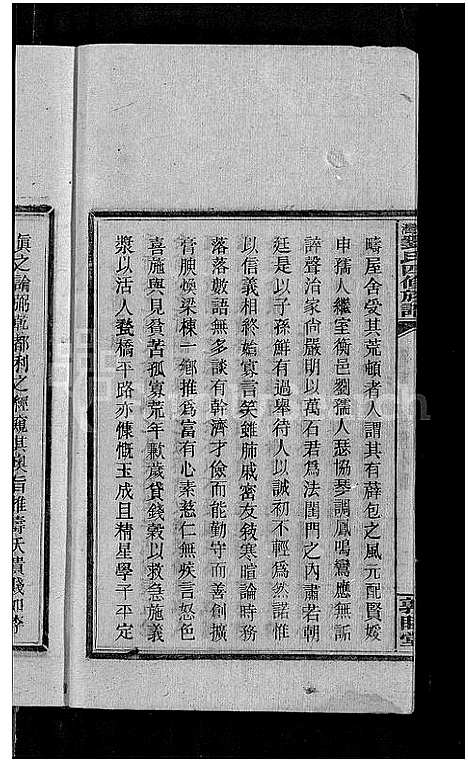 氏四修族譜
敦睦堂
疇屋舍受其荒頓者人謂其有薛包之風元配賢媛
申孺人繼室衡邑劉孺人瑟協琴調鳳鳴鸞應無詬
誶聲治家尙嚴明以萬石君爲法閨門之內肅若朝
廷是以子孫鮮有過舉待人以誠初不輕爲然諾惟
以信義相終始寡言笑雖肺戚密友敍寒暄論時務
落落數語無多談有幹濟才儉而能勤守而善創擴
膏腴煥梁棟一鄉推爲富有心素慈仁無疾言怒色
喜施與見貧苦孤寡荒年歉歲貸錢穀以救急施義
漿以活人甃橋平路亦慷慨玉成且精星學子平定
眞之論瓶都利之經窺其奧旨推壽夭貴賤如李